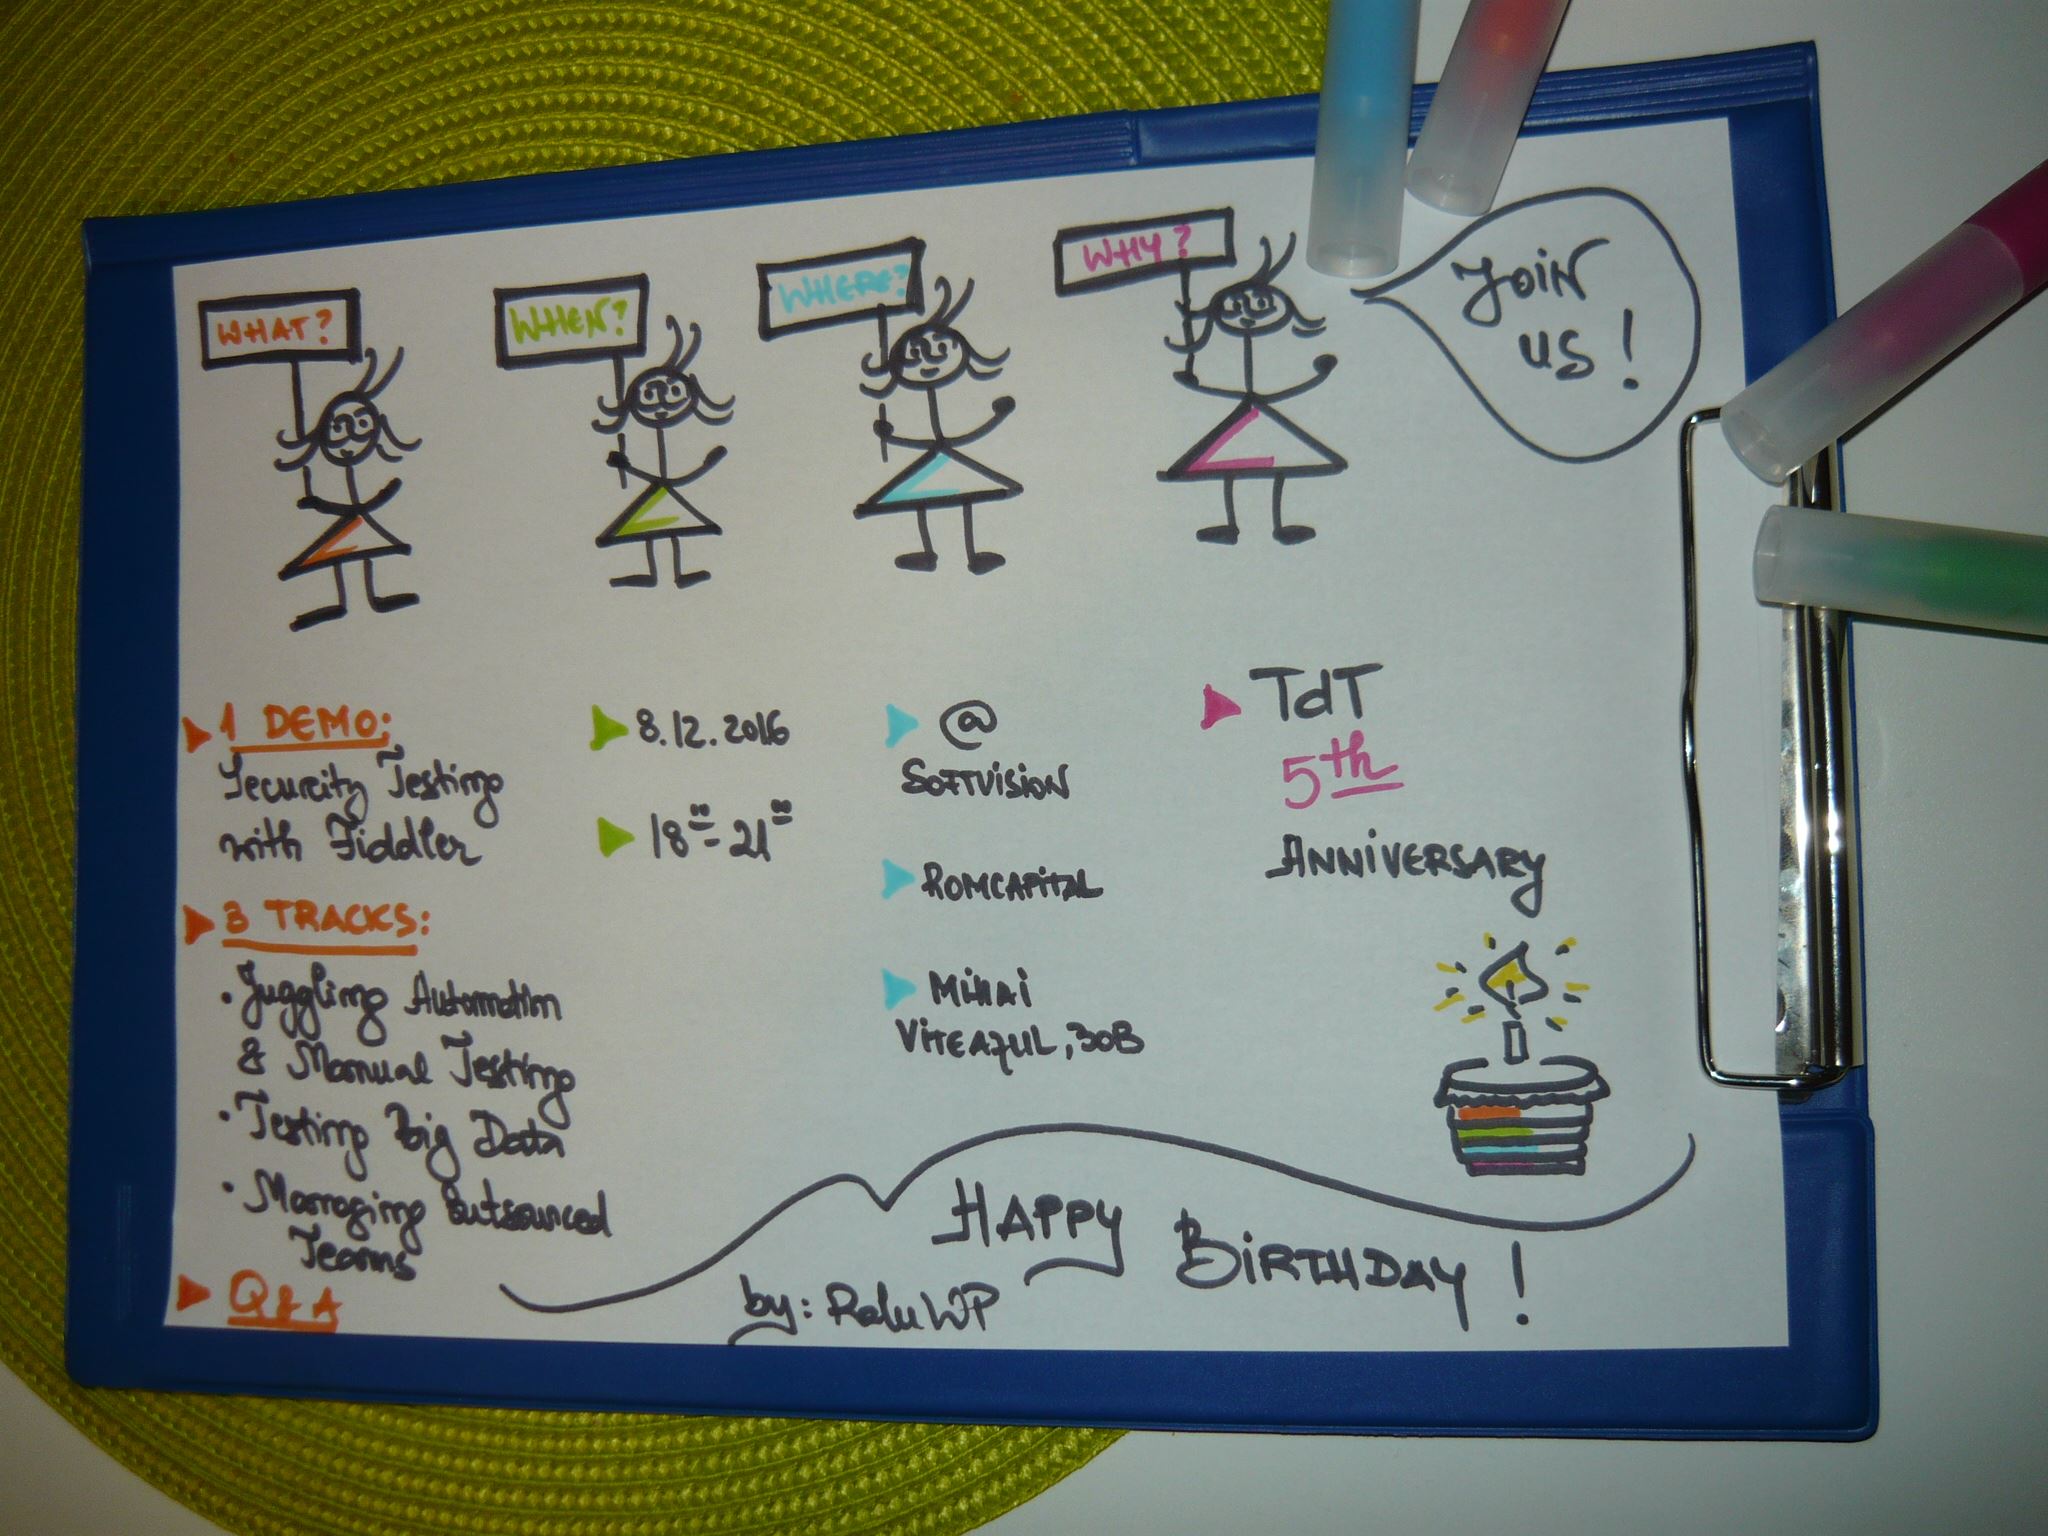 WHAT?
WHEN?
WHERE?
WHY?
JOiN
US!
1 DEMO:
Security Testing
with Fiddler
3 TRACKS:
• Juggling Automation
& Manual Testing
• Testing Big Data
• Managing Outsourced
Teams
Q&A
8.12.2016
18⁰⁰-21⁰⁰
@
SOFTViSiON
ROMCAPiTAL
MiHAi
ViTEAZUL, 30B
TdT
5th
ANNiVERSARY
HAPPY BiRTHDAY!
by: RaluWP